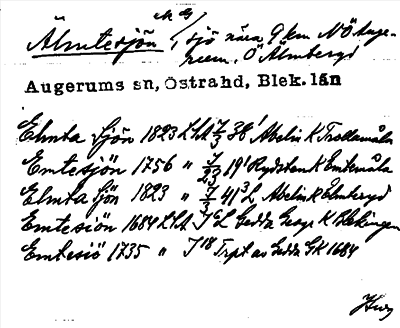 Älmtesjön, sjö nära 9 km NÖ Auge-
rum, Ö Älmberyd
Augerums sn, Östrahd, Blek. län
Elmta Sjön 1823 LSA 7/3 38' Abelin K Trollamåla
Emtesjön 1756 " 7/23 19' Rydsten K Emtemåla
Elmta Sjön 1823 " 7/3 41³ L Abelin K Elmteryd
Emtesiön 1684 LSA Gedda Geogr K Blekingen
Emtesiö 1735 " J 18 Trpt av Gedda GK 1684